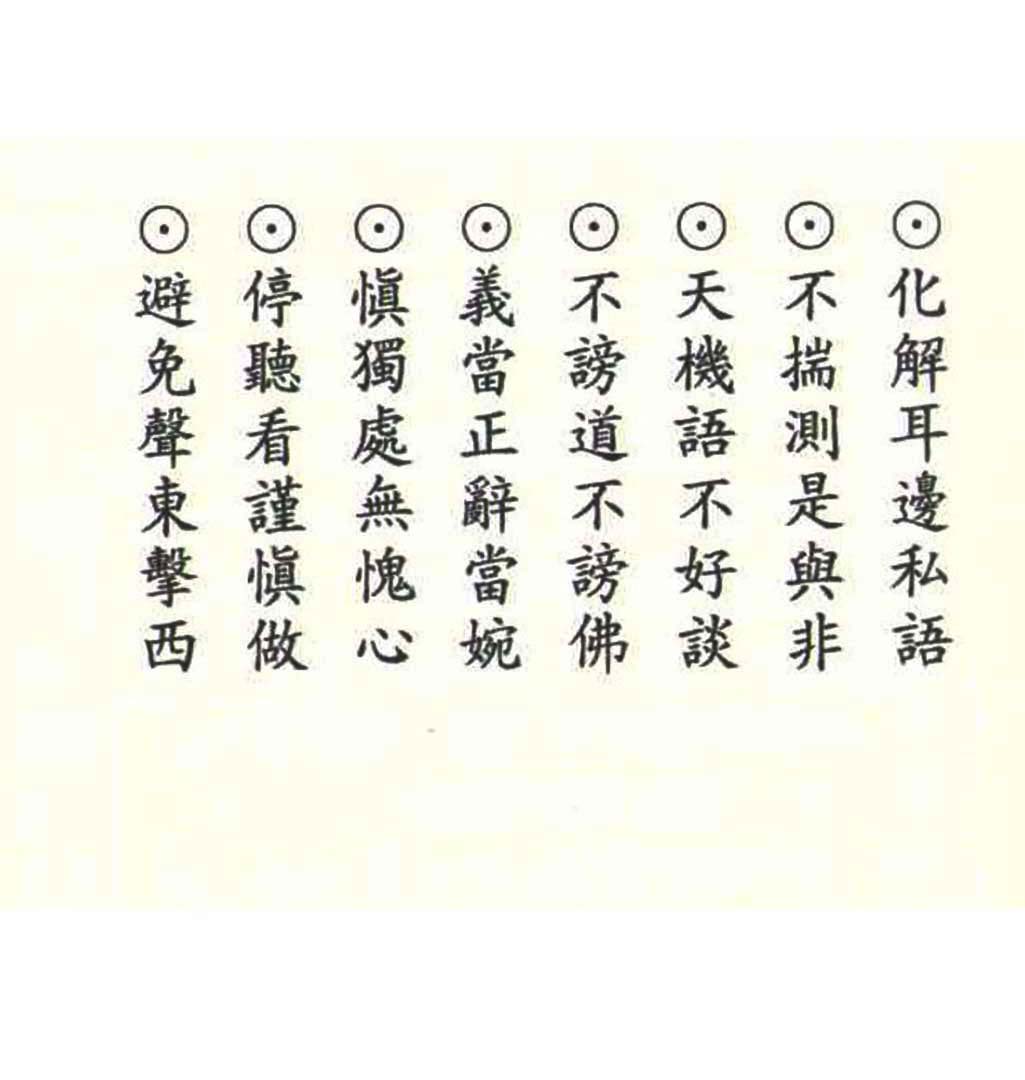 ⊙化解耳邊私語
⊙不揣測是與非
⊙天機語不好談
⊙不謗道不謗佛
⊙義當正辭當婉
⊙慎獨處無愧心
⊙停聽看謹慎做
⊙避免聲東擊西